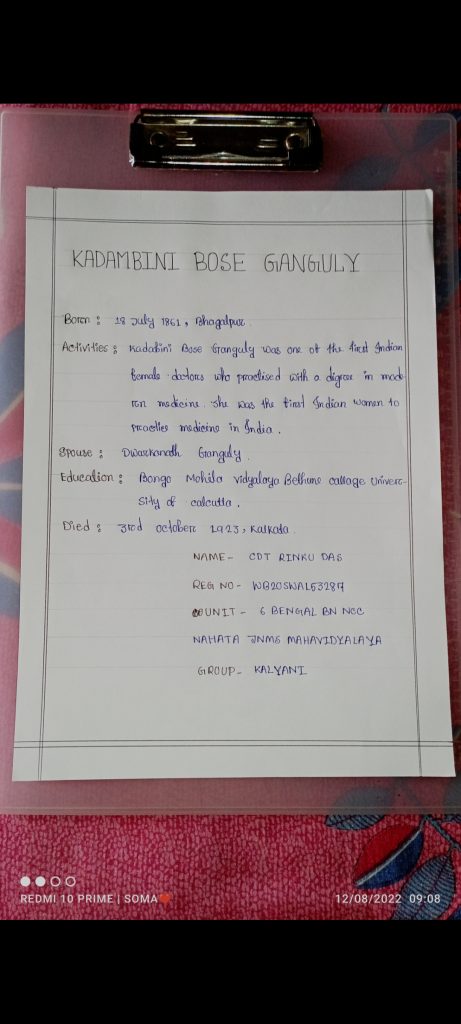 KADAMBINI BOSE GANGULY
Born : 18 July 1861, Bhagalpur.
Activities : Kadabini Bose Granguly was one of the first Indian
female doctors who practised with a digree in mod-
ren medicine. She was the first Indian women to
practies medicine in India.
Spouse : Dwarkanadh Granguly.
Education : Bongo Mohila vidyalaya Belhune callage Univer-
sity of calcutta.
Died : 3rd october 1923, Kalkata.
NAME - CDT RINKU DAS
REG NO - WB20SWAL53287
UNIT - 6 BENGAL BN NCC
NAHATA JNMS MAHAVIDYALAYA
GROUP - KALYANI
REDMI 10 PRIME | SOMA❤
12/08/2022 09:08